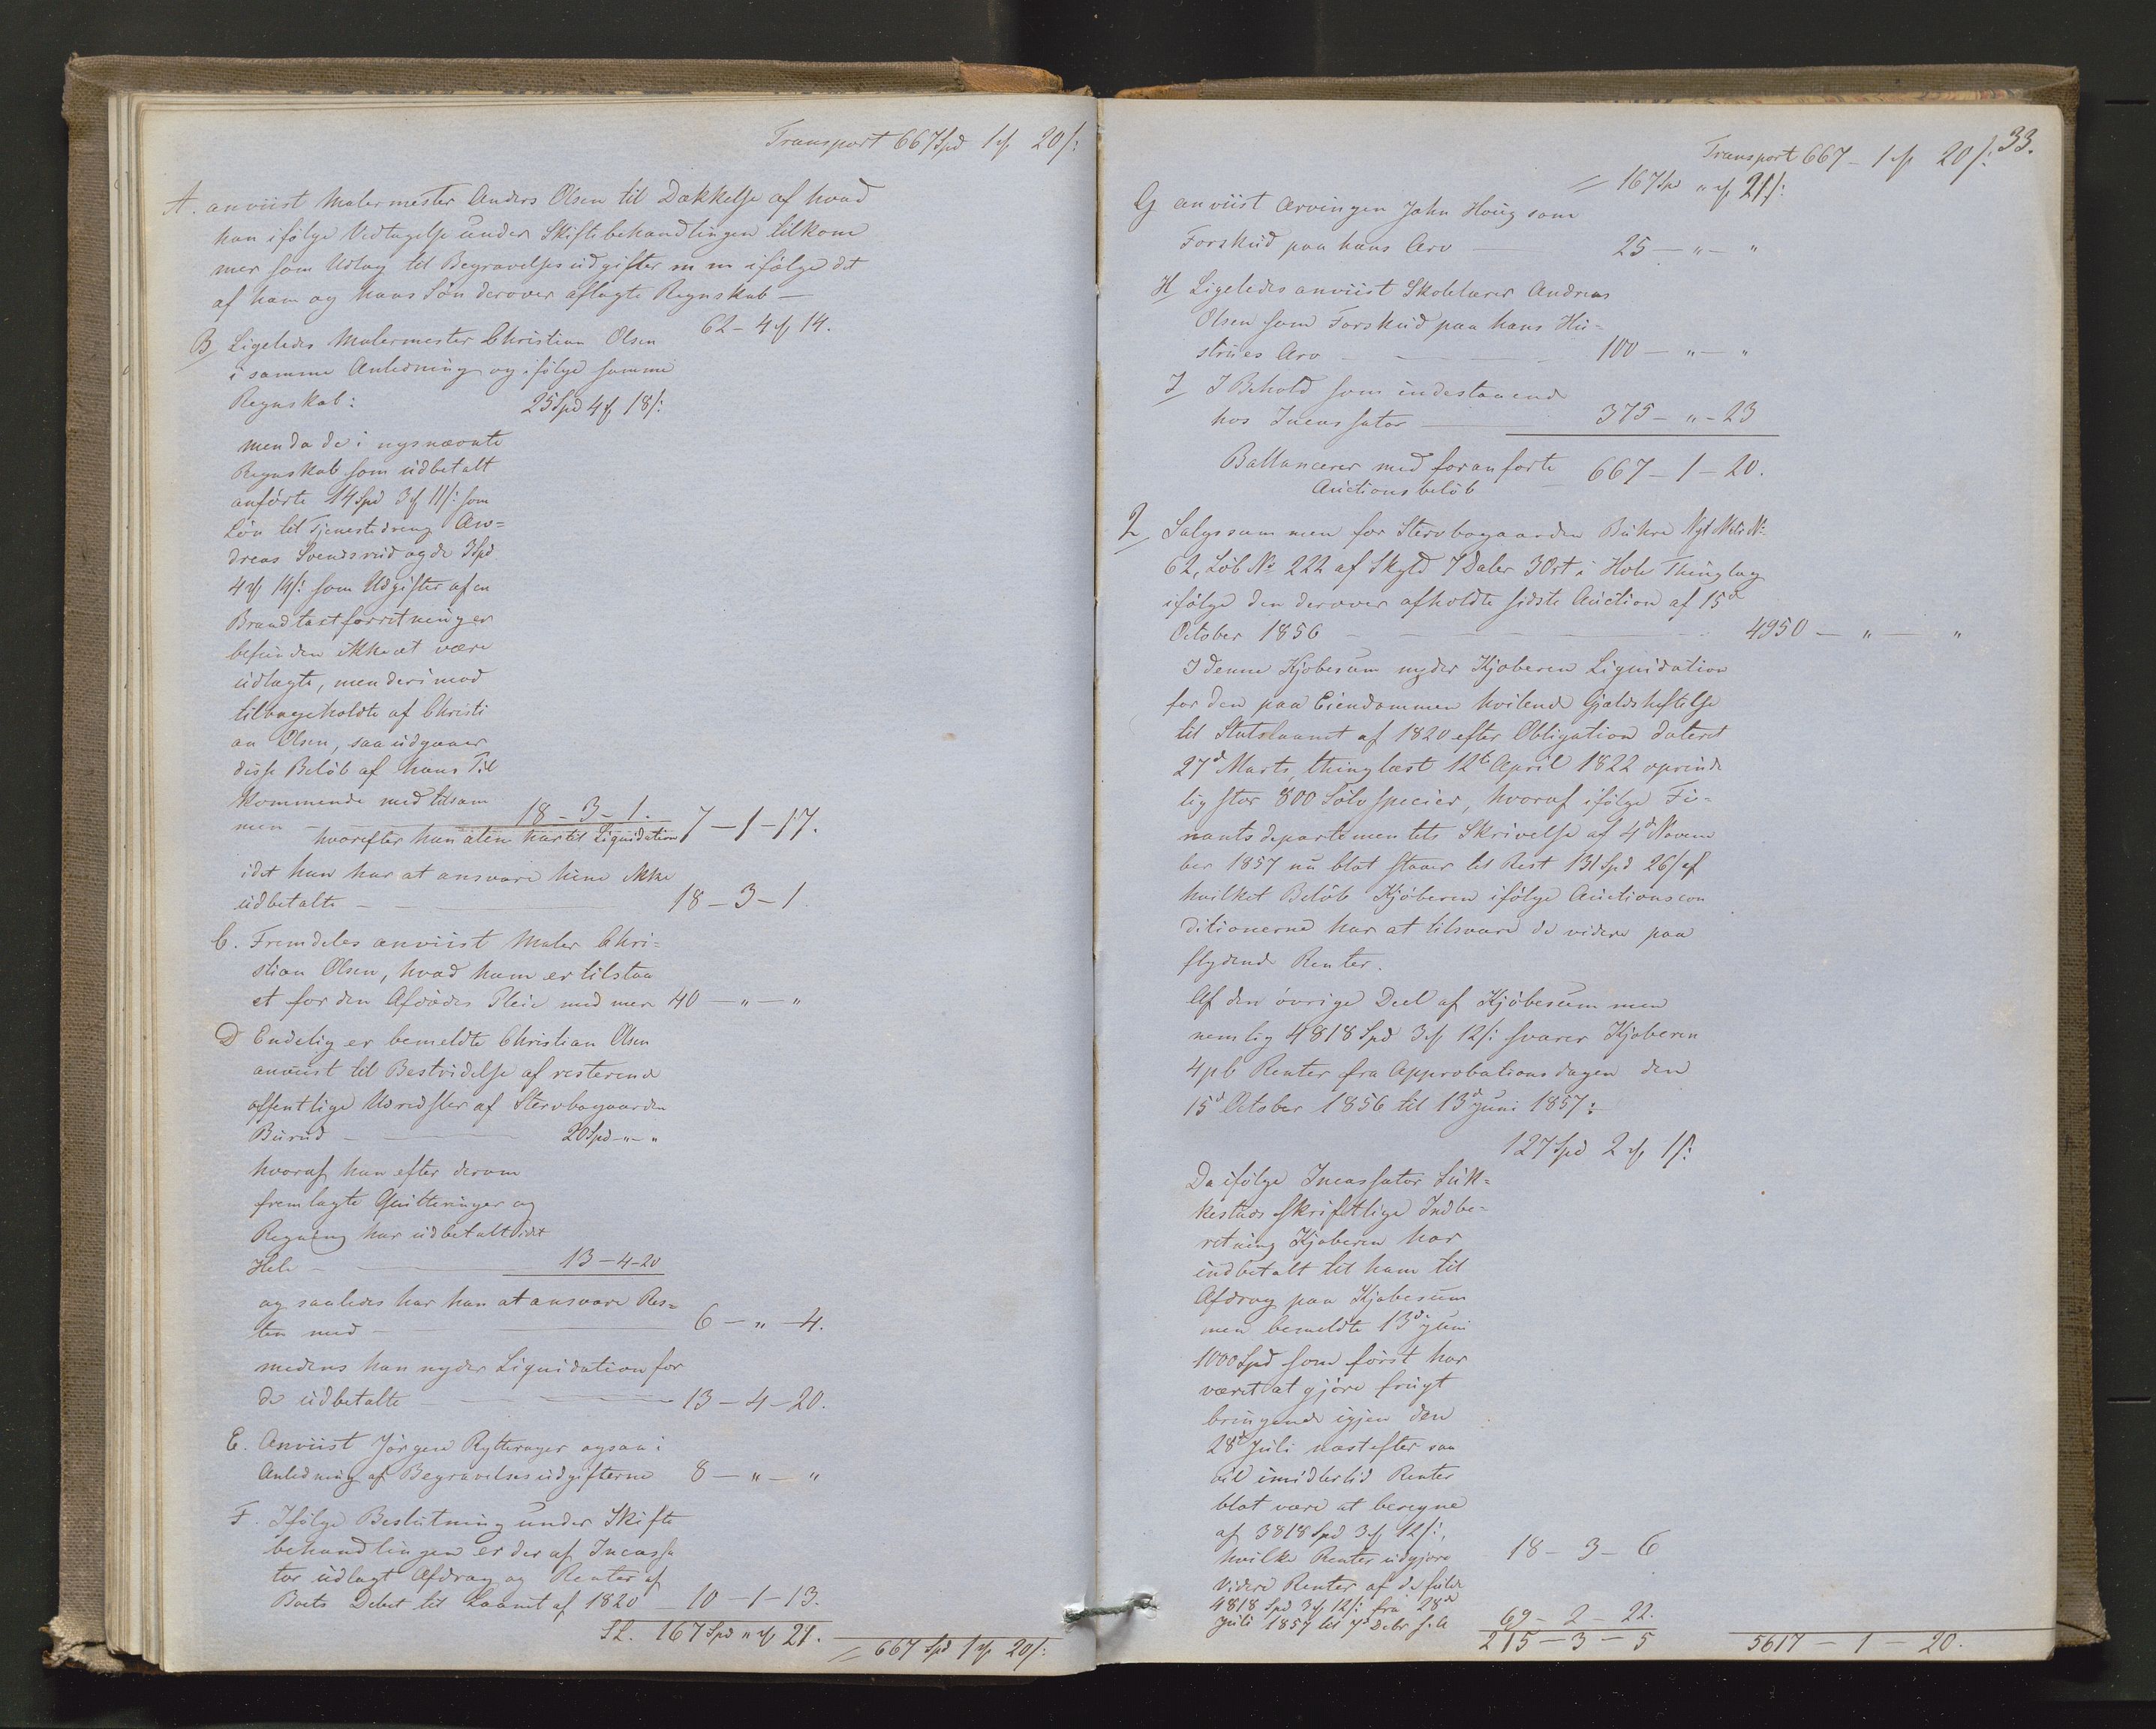 Transport 667 Spd 1 # 20 /:
A. anviist Malermester Anders Olsen til Dækkelse af hvad
han ifølge Vedtagelse under Skiftebehandlingen tilkom
mer som Udlæg til Begravelsesudgifter m m ifølge det
af ham og hans Søn derover aflagte Regnskab —
62 - 4 # 14.
B, Ligeledes Malermester Christian Olsen
i samme Anledning og ifølge samme
Regnskab: 25 Spd 4 # 18 /:
men da de i nysnævnte
Regnskab som udbetalt
anførte 14 Spd 3 # 11 /: som
Løn til Tjenestedreng An=
dreas Svendsrud og de 3 Spd
4 # 14 /: som Udgifter af en
Brandtaxtforretning er
befunden ikke at være
udlagte, men derimod
tilbageholdte af Christi
an Olsen, saa udgaaer
disse Beløb af hans Til
kommende med tilsam
men — 18 - 3 - 1.
hvorefter han alene har til Liquidation 7 - 1 - 17.
idet han har at ansvare hine ikke
udbetalte — 18 - 3 - 1.
C. Fremdeles anviist Maler Chri=
stian Olsen, hvad ham er tilstaa
et for den Afdødes Pleie med mere 40 — " — "
D Endelig er bemeldte Christian Olsen
anviist til Bestridelse af resterende
offentlige Udredsler af Stervbogaarden
Burud — 20 Spd - " - "
hvoraf han efter derom
fremlagte Quitteringer og
Regning har udbetalt i det
Hele — 13 - 4 - 20
og saaledes har han at ansvare Res=
ten med — 6 — " — 4.
medens han nyder Liquidation for
de udbetalte — 13 - 4 - 20.
E. Anviist Jørgen Rytterager ogsaa i
Anledning af Begravelsesudgifterne 8 — " — "
F. Ifølge Beslutning under Skifte
behandlingen er der af Incassa
tor udlagt Afdrag og Renter af
Boets Debet til Laanet af 1820 — 10 - 1 - 13.
167 Spd " # 21. = 667 Spd 1 # 20 /:
33.
Transport 667 - 1 # 20 /:
= 167 Spd " # 21 /:
G anviist Arvingen John Houg som
Forskud paa hans Arv — 25 — " — "
H Ligeledes anviist Skolelærer Andreas
Olsen som Forskud paa hans Hu=
strues Arv — 100 — " — "
I I Behold som indestaaende
hos Incassator — 375 - " - 23
Ballancerer med foranførte 667 - 1 - 20.
Auctionsbeløb
2, Salgssummen for Stervbogaarden Buhre Nyt Matr No
62, Løb No 222 af Skyld 7 Daler 3 Ort i Hole Thinglag
ifølge den derover afholdte sidste Auction af 15de
October 1856 — 4950 — " — "
I denne Kjøbesum nyder Kjøberen Liquidation
for den paa Eiendommen hvilende Gjældsheftelse
til Statslaanet af 1820 efter Obligation dateret
27d Marts, thinglæst 12te April 1822 oprinde
lig stor 800 Sølvspecies, hvoraf ifølge Fi=
nantsdepartementets Skrivelse af 4d Novem
ber 1857 nu blot staaer til Rest 131 Spd 26 /: af
hvilket Beløb Kjøberen ifølge Auctionscon
ditionerne har at tilsvare de videre paa
flydende Renter.
Af den øvrige Deel af Kjøbesummen
nemlig 4818 Spd 3 # 12 /: svarer Kjøberen
4 pC Renter fra Approbationsdagen den
15d October 1856 til 13d Juni 1857:
127 Spd 2 # 1 /:
Da ifølge Incassator Suk=
kestads skriftlige Indbe=
retning Kjøberen har
indbetalt til ham til
Afdrag paa Kjøbesum
men bemeldte 13d Juni
1000 Spd som først har
været at gjøre frugt
bringende igjen den
28d Juli næstefter saa
vil imidlertid Renter
blot være at beregne
af 3818 Spd 3 # 12 /:,
hvilke Renter udgjøre 18 - 3 - 6
Videre Renter af de fulde
4818 Spd 3 # 12 /: fra 28de
Juli 1857 til 7d Debr s. A 69 - 2 - 22.
215 - 3 - 5 5617 — 1 — 20.